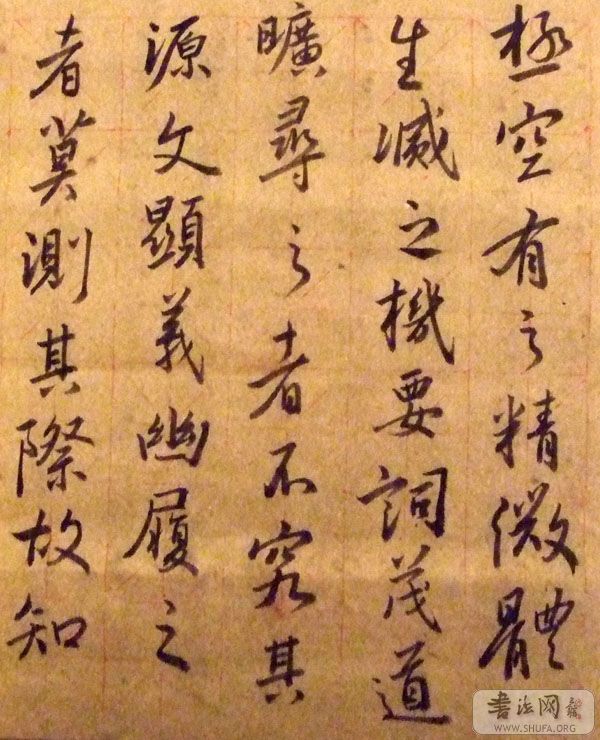 極空有之精微體
生滅之機要詞茂道
曠尋之者不究其
源文顯義幽履之
者莫測其際故知
书法网
WWW.SHUFA.ORG